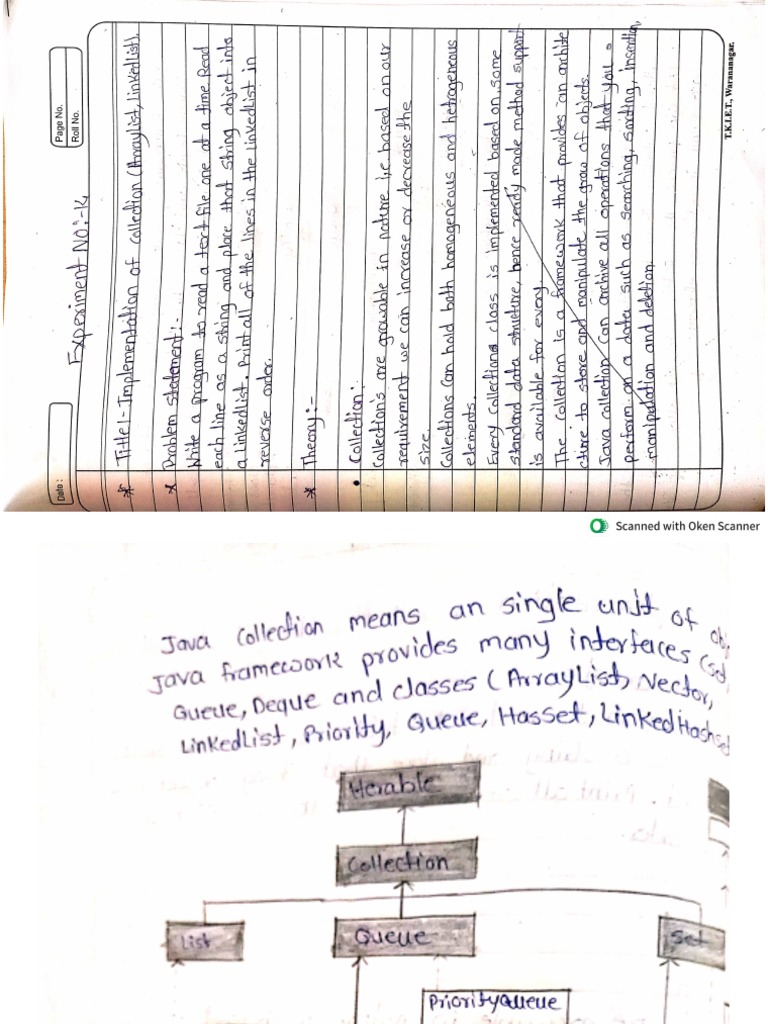 Date :
Page No.
Roll No.
Experiment NO:-K
* Title!- Implementation of collection (ArrayList, linkedList).
* Problem statement:-
Write a program to read a text file one at a time. Read
each line as a string and place that string object into
a linkedlist. Print all of the lines in the linkedList in
reverse order.
* Theory:-
• Collection:
Collection's are growable in nature i,e based on our
requirement we can increase or decrease the
size.
Collections Can hold both homogeneous and hetrogeneous
elements.
Every collections class is implemented based on some
standard data structure, hence ready made method support
is available for every
The collection is a framework that provides an archite
cture to store and manipulate the grow of objects.
Java collection can archive all operations that you
perform on a data such as searching, sorting, insertion,
manipulation and deletion.
T.K.I.E.T., Warananagar.
Scanned with Oken Scanner
Java collection means an single unit of obj
Java framework provides many interfaces (set
Queue, Deque and classes (ArrayList, Vector,
LinkedList, Priority, Queue, Hasset, LinkedHashset
Iterable
Collection
List
Queue
Set
PriorityQueue